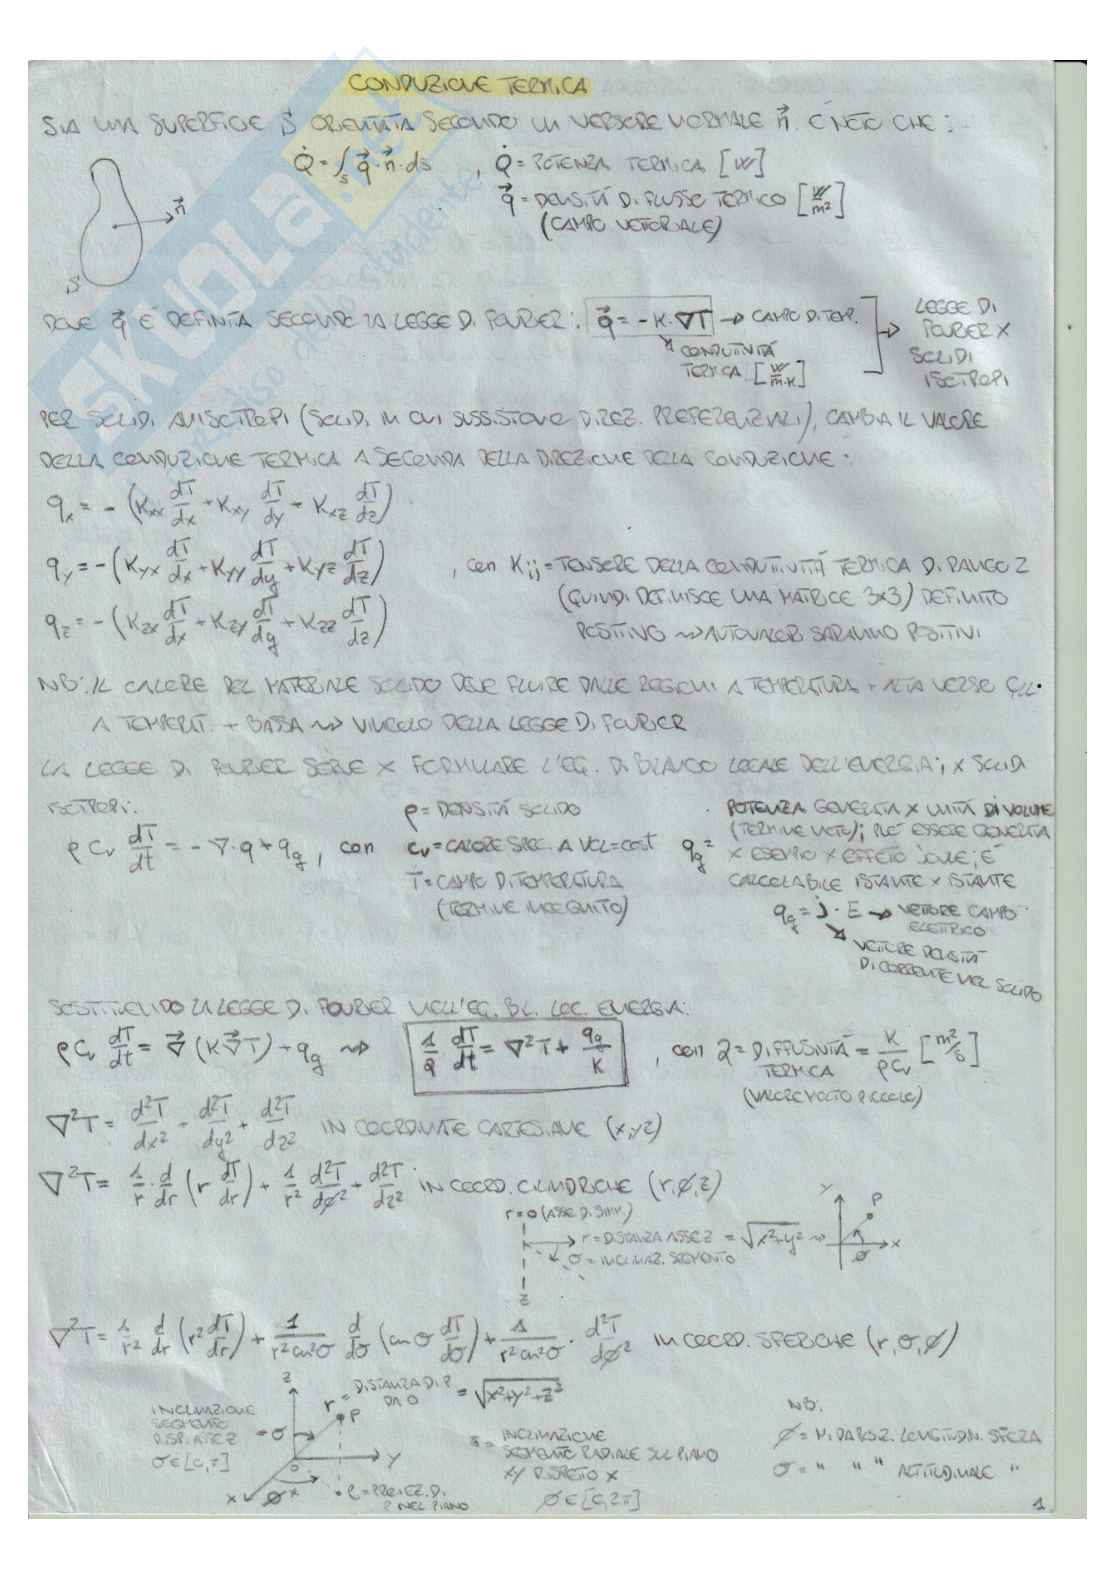 CONDUZIONE TERMICA
SIA UNA SUPERFICIE S ORIENTATA SECONDO UN VERSORE NORMALE n⃗. È NOTO CHE:
Q̇ = ∫s q⃗·n⃗·ds , Q̇ = POTENZA TERMICA [W]
q⃗ = DENSITÀ DI FLUSSO TERMICO [W/m²]
(CAMPO VETTORIALE)
n⃗
S
DOVE q⃗ È DEFINITA SECONDO LA LEGGE DI FOURIER: q⃗ = -K·∇T → CAMPO DI TEMP.
CONDUTIVITÀ
TERMICA [W/m·K]
LEGGE DI
FOURIER X
SOLIDI
ISOTROPI
PER SOLIDI ANISOTROPI (SOLIDI IN CUI SUSSISTONO DIREZ. PREFERENZIALI), CAMBIA IL VALORE
DELLA CONDUZIONE TERMICA A SECONDA DELLA DIREZIONE DELLA CONDUZIONE:
qx = - (Kxx dT/dx + Kxy dT/dy + Kxz dT/dz)
qy = - (Kyx dT/dx + Kyy dT/dy + Kyz dT/dz) , con Kij = TENSORE DELLA CONDUTTIVITÀ TERMICA DI RANGO 2
(QUINDI DEFINISCE UNA MATRICE 3x3) DEFINITO
qz = - (Kzx dT/dx + Kzy dT/dy + Kzz dT/dz) POSITIVO ⇝ AUTOVALORI SARANNO POSITIVI
NB: IL CALORE DEL MATERIALE SOLIDO DEVE FLUIRE DALLE REGIONI A TEMPERATURA + ALTA VERSO QLL.
A TEMPERAT. + BASSA ⇝ VINCOLO DELLA LEGGE DI FOURIER
LA LEGGE DI FOURIER SERVE X FORMULARE L'EQ. DI BILANCIO LOCALE DELL'ENERGIA; X SOLIDI
ISOTROPI:
ρ Cv dT/dt = -∇·q + qg , con
ρ = DENSITÀ SOLIDO
Cv = CALORE SPEC. A VOL = COST
T = CAMPO DI TEMPERATURA
(TERMINE INCOGNITO)
qg = POTENZA GENERATA X UNITÀ DI VOLUME
(TERMINE NOTO); PUÒ ESSERE GENERATA
X ESEMPIO X EFFETTO JOULE; È
CALCOLABILE ISTANTE X ISTANTE
qg = j · E → VETTORE CAMPO
ELETTRICO
VETTORE DENSITÀ
DI CORRENTE NEL SOLIDO
SOSTITUENDO LA LEGGE DI FOURIER NELL'EQ. BIL. LOC. ENERGIA:
ρ Cv dT/dt = ∇⃗ (K∇⃗T) + qg ⇝ 1/α dT/dt = ∇²T + qg/K , con α = DIFFUSIVITÀ TERMICA = K/ρCv [m²/s]
(VALORE MOLTO PICCOLO)
∇²T = d²T/dx² + d²T/dy² + d²T/dz² IN COORDINATE CARTESIANE (x,y,z)
∇²T = 1/r · d/dr (r dT/dr) + 1/r² d²T/dø² + d²T/dz² IN COORD. CILINDRICHE (r,ø,z)
r = 0 (ASSE DI SIMM.)
r = DISTANZA ASSE Z = √x²+y² ⇝
σ = INCLINAZ. SEGMENTO
z
y
P
x
ø
∇²T = 1/r² d/dr (r² dT/dr) + 1/r² sin²σ d/dσ (sin σ dT/dσ) + 1/r² sin²σ · d²T/dø² IN COORD. SFERICHE (r,σ,ø)
z
r = DISTANZA DI P DA O = √x²+y²+z²
P
INCLINAZIONE
SEGMENTO
RISP. ASSE Z
= σ
σ∈[0,π]
O
y
x
ø
= PROIEZ. DI
P NEL PIANO
= INCLINAZIONE
SEGMENTO RADIALE SUL PIANO
XY RISPETTO X
ø∈[0,2π]
NB:
ø = MI DÀ POZ. LONGITUDIN. SFERA
σ = " " " ALTITUDINALE "
1
SKUOLA.net